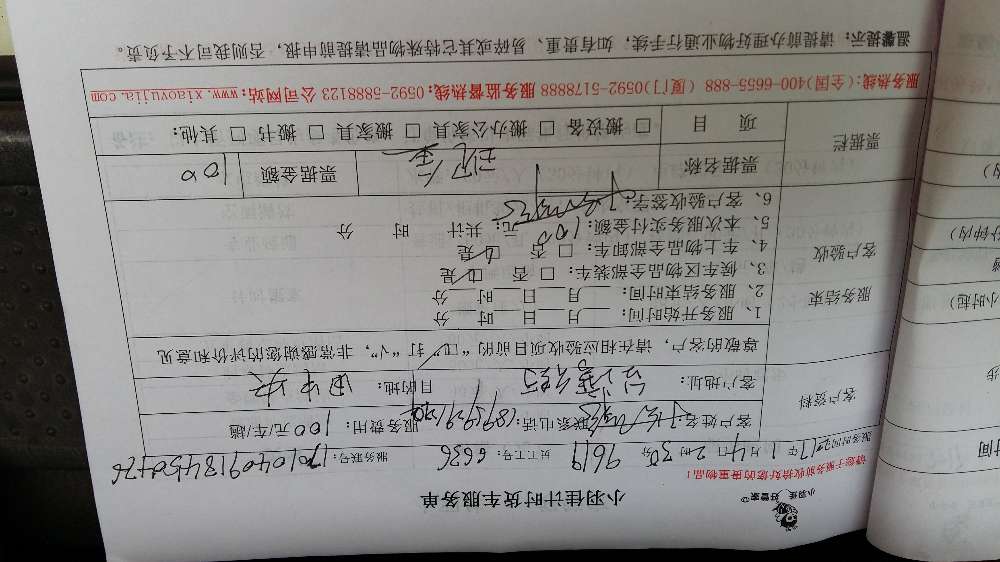 小羽佳 好管家
小羽佳计时货车服务单
请您于服务前收拾好您的贵重物品！
服务时间2017年1月4日2时30分 9619 员工工号：6636 服务联号：1701040918450476
客户资料
客户姓名 联系电话： 服务费用：100元/车/趟
客户地址： 目的地：
尊敬的客户，请在相应验收项目前的“□”打“√”，非常感谢您的评价和意见
服务结束
客户验收
1、服务开始时间：___月___日___时___分
2、服务结束时间：___月___日___时___分
3、候车区物品全部装车：□否 ☑是
4、车上物品全部卸车：□否 ☑是
5、本次服务实付金额：100元；共计 时 分
6、客户验收签字：
票据栏
票据名称 现金 票据金额 100
项目 □搬设备 □搬办公家具 □搬家具 □搬书 □其他：
服务热线：(全国)400-6655-888 (厦门)0592-5178888 服务监督热线：0592-5888123 公司网站：www.xiaoyujia.com
温馨提示：请提前办理好物业通行手续，如有贵重、易碎或其它特殊物品请提前申报，否则我司不予负责。
内）
分钟内）
小时起）
步
时间